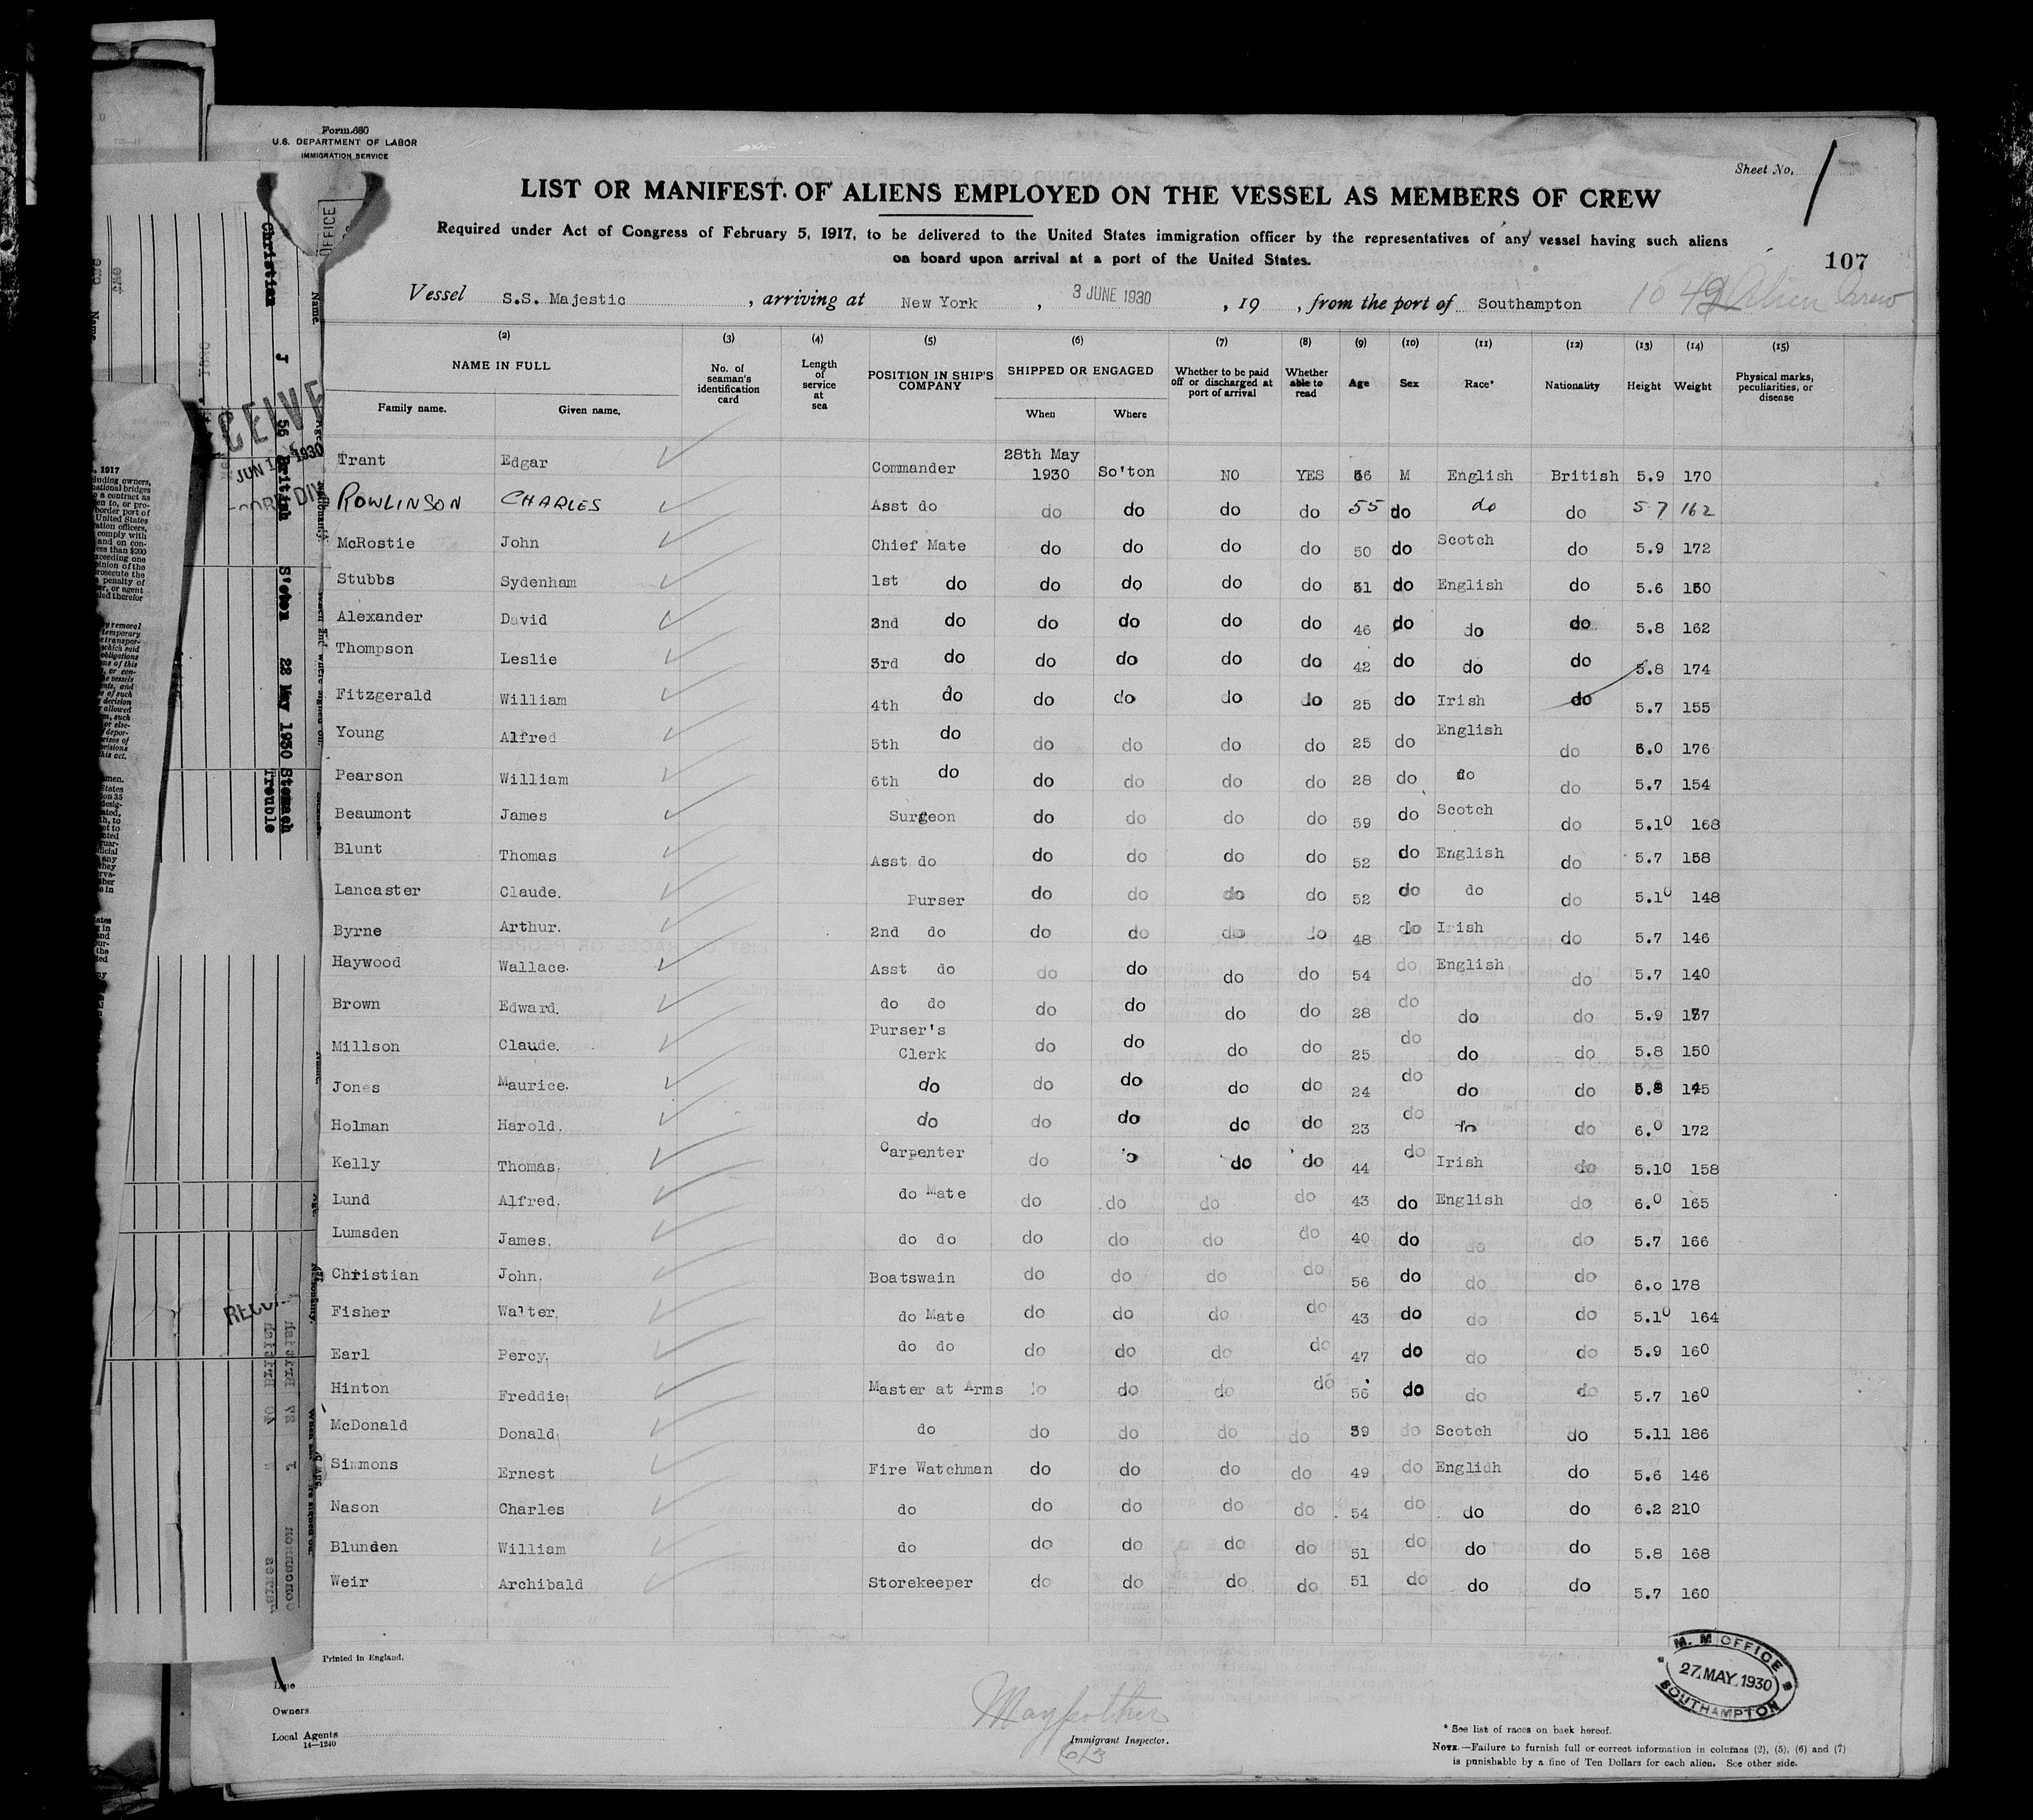 Form 680
U.S. DEPARTMENT OF LABOR
IMMIGRATION SERVICE
Sheet No. 1
LIST OR MANIFEST OF ALIENS EMPLOYED ON THE VESSEL AS MEMBERS OF CREW
Required under Act of Congress of February 5, 1917, to be delivered to the United States immigration officer by the representatives of any vessel having such aliens
on board upon arrival at a port of the United States.
107
Vessel S.S. Majestic, arriving at New York, 3 JUNE 1930, 19 , from the port of Southampton
Alien Crew
(2) (3) (4) (5) (6) (7) (8) (9) (10) (11) (12) (13) (14) (15)
NAME IN FULL
Family name. Given name.
No. of seaman's identification card
Length of service at sea
POSITION IN SHIP'S COMPANY
SHIPPED OR ENGAGED
When Where
Whether to be paid off or discharged at port of arrival
Whether able to read
Age Sex Race* Nationality Height Weight
Physical marks, peculiarities, or disease
Trant Edgar Commander 28th May 1930 So'ton NO YES 56 M English British 5.9 170
ROWLINSON CHARLES Asst do do do do do 55 do do do 5 7 162
McRostie John Chief Mate do do do do 50 do Scotch do 5.9 172
Stubbs Sydenham 1st do do do do do 51 do English do 5.6 150
Alexander David 2nd do do do do do 46 do do do 5.8 162
Thompson Leslie 3rd do do do do do 42 do do do 5.8 174
Fitzgerald William 4th do do do do do 25 do Irish do 5.7 155
Young Alfred 5th do do do do do 25 do English do 6.0 176
Pearson William 6th do do do do do 28 do do do 5.7 154
Beaumont James Surgeon do do do do 59 do Scotch do 5.10 168
Blunt Thomas Asst do do do do do 52 do English do 5.7 158
Lancaster Claude. Purser do do do do 52 do do do 5.10 148
Byrne Arthur. 2nd do do do do do 48 do Irish do 5.7 146
Haywood Wallace. Asst do do do do do 54 do English do 5.7 140
Brown Edward. do do do do do do 28 do do do 5.9
Millson Claude. Purser's Clerk do do do do 25 do do do 5.8 150
Jones Maurice. do do do do do 24 do do do 5.8 145
Holman Harold. do do do do do 23 do do do 6.0 172
Kelly Thomas. Carpenter do do do do 44 do Irish do 5.10 158
Lund Alfred. do Mate do do do do 43 do English do 6.0 165
Lumsden James. do do do do do do 40 do do do 5.7 166
Christian John. Boatswain do do do do 56 do do do 6.0 178
Fisher Walter. do Mate do do do do 43 do do do 5.10 164
Earl Percy. do do do do do do 47 do do do 5.9 160
Hinton Freddie Master at Arms do do do do 56 do do do 5.7 160
McDonald Donald do do do do do 39 do Scotch do 5.11 186
Simmons Ernest Fire Watchman do do do do 49 do Englidh do 5.6 146
Nason Charles do do do do do 54 do do do 6.2 210
Blunden William do do do do do 51 do do do 5.8 168
Weir Archibald Storekeeper do do do do 51 do do do 5.7 160
Printed in England.
Line
Owners
Local Agents
14—1240
Immigrant Inspector.
6/3
M. M OFFICE
27 MAY 1930
SOUTHAMPTON
* See list of races on back hereof.
NOTE.—Failure to furnish full or correct information in columns (2), (5), (6) and (7)
is punishable by a fine of Ten Dollars for each alien. See other side.
Christian J 56 British S'oton 22 May 1930 Stomach
Trouble